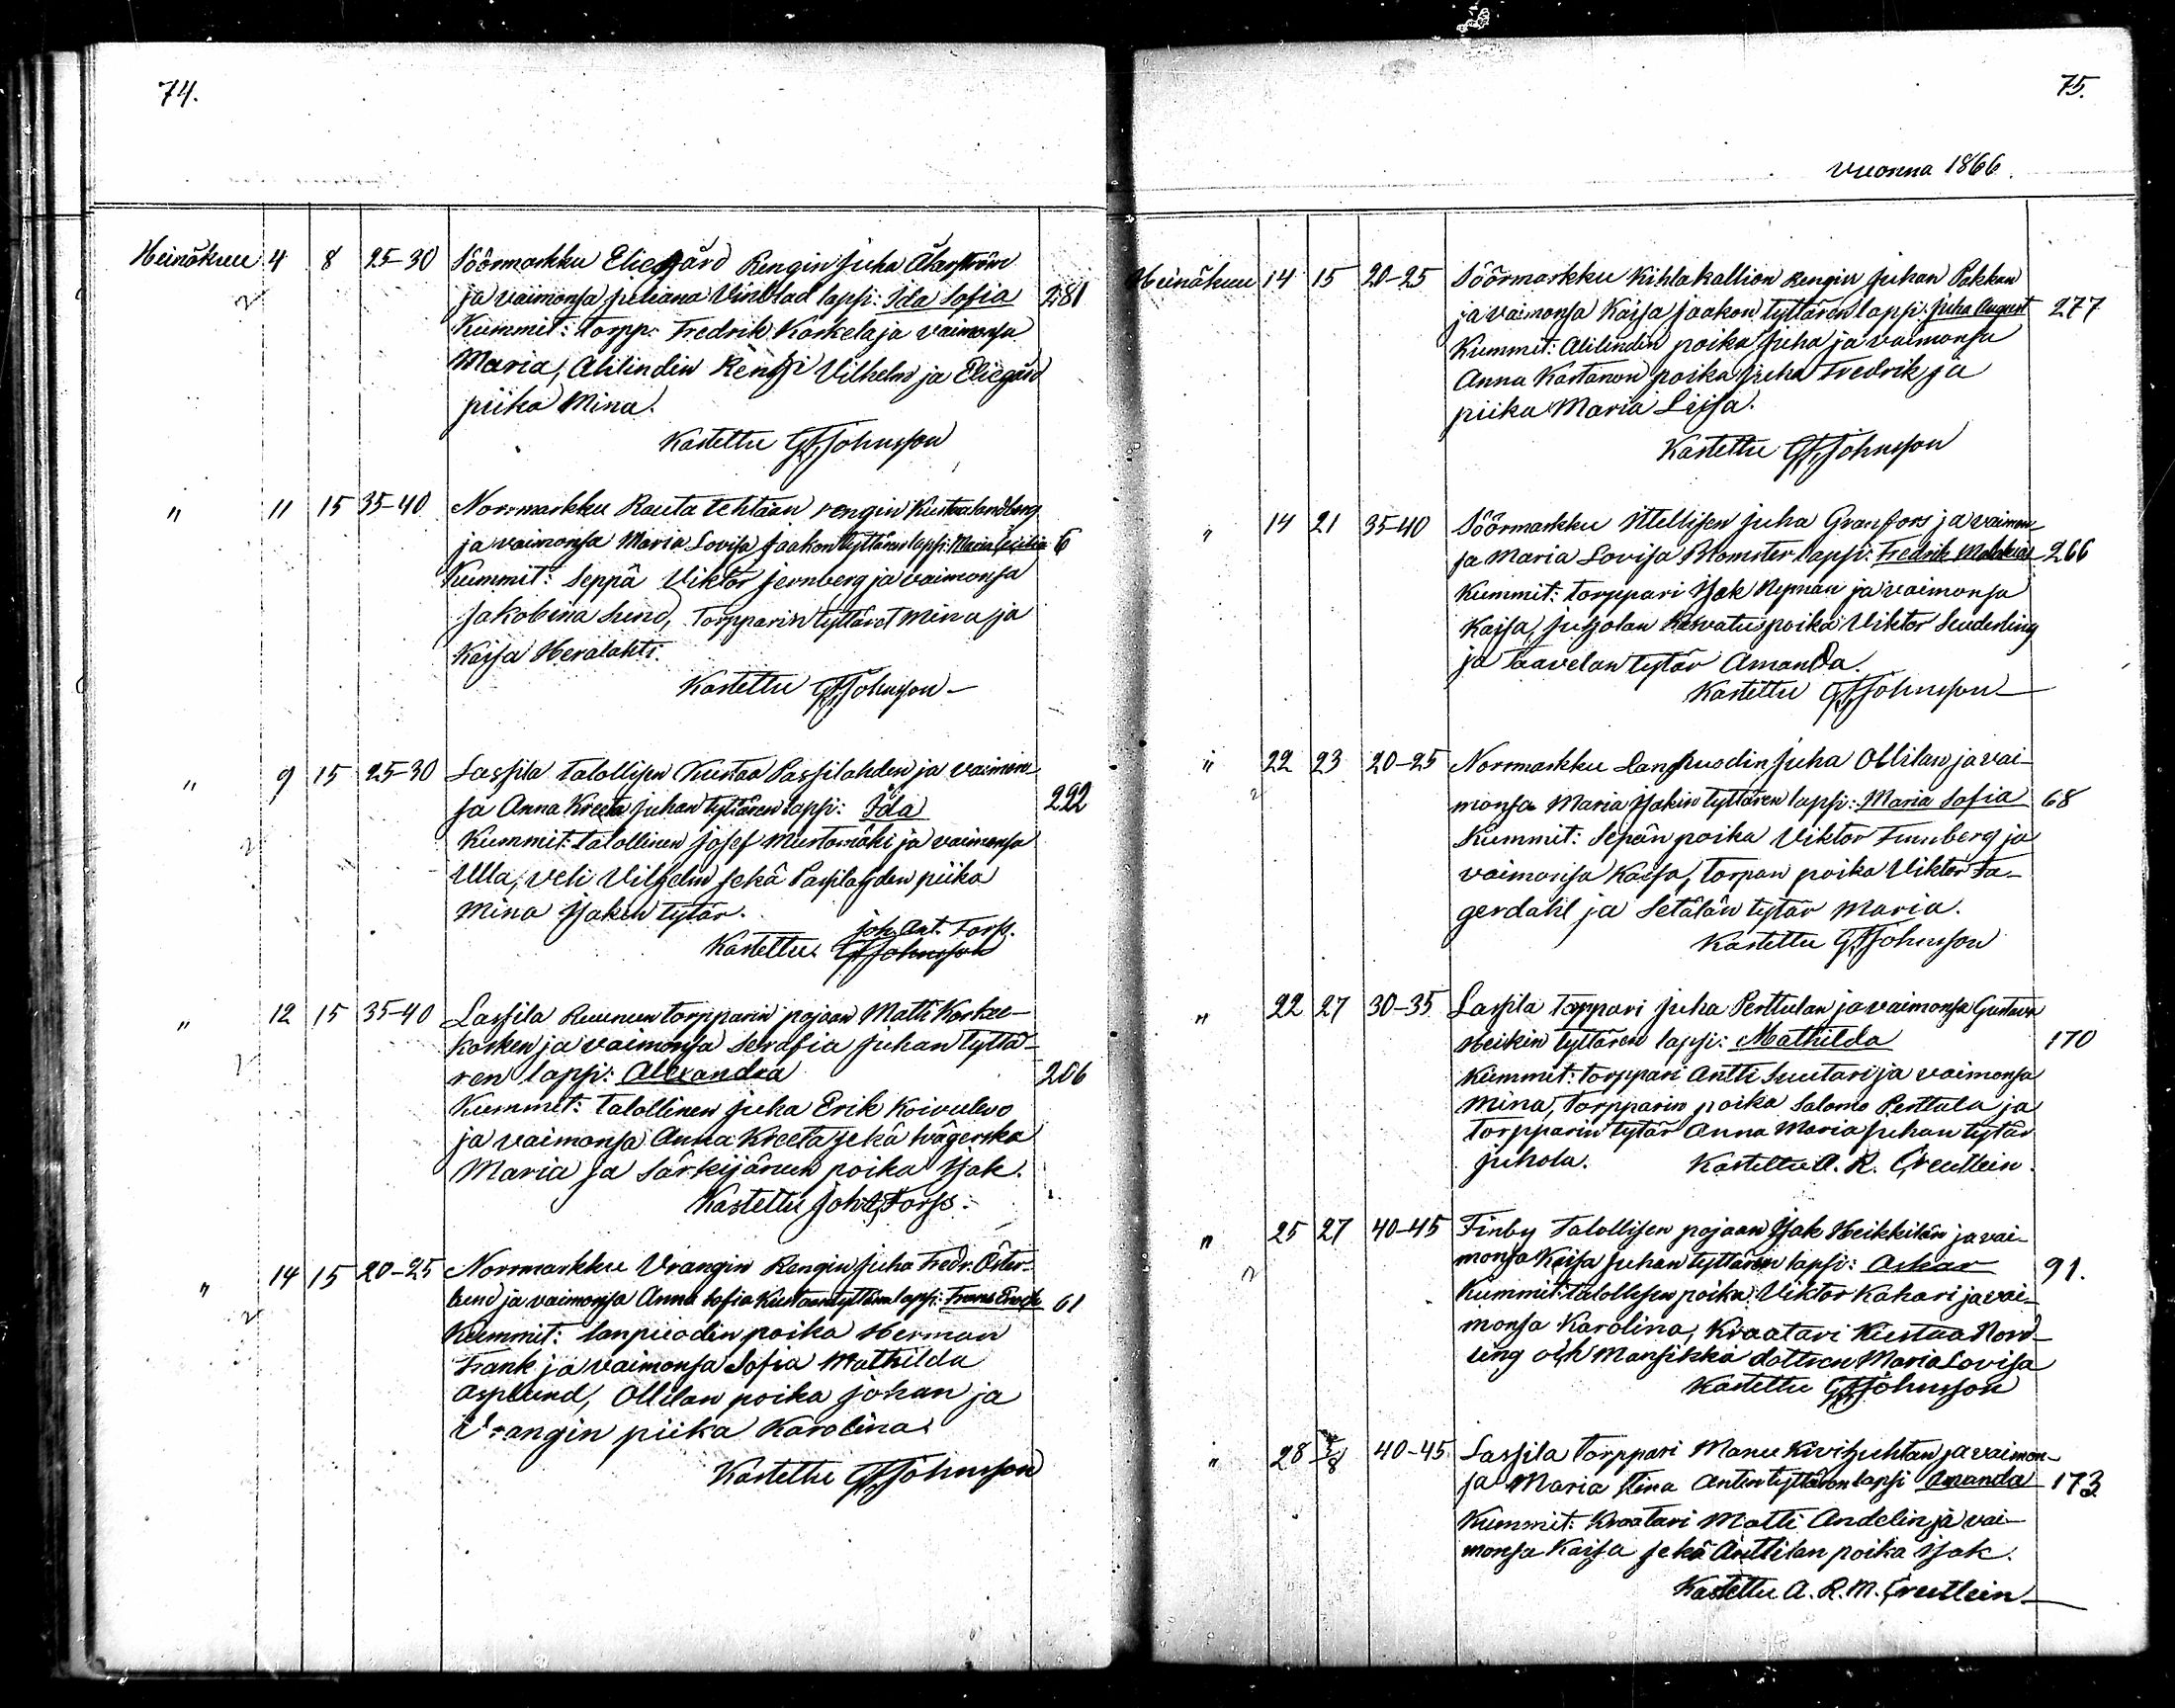 74.
Heinäkuu 4 8 25-30 Söörmarkku Eliegård Rengin Juha Åkerström
ja vaimonsa Juliana Vinblad lapsi: Ida Sofia 281
Kummit: torpp. Fredrik Koskela ja vaimonsa
Maria, Alilindin Renki Vilhelm ja Eliegård
piika Mina.
Kastettu GFJohnsson
" 11 15 35-40 Norrmarkku Rauta tehtään rengin Kustaa Sandberg
ja vaimonsa Maria Lovisa Jaakon tyttären lapsi: Maria Cecilia 6
Kummit: Seppä Viktor Jernberg ja vaimonsa
Jakobina Lund, Torpparin tyttäret Mina ja
Kaisa Heralahti.
Kastettu GFJohnsson
" 9 15 25-30 Lassila talollisen Kustaa Passilahden ja vaimon-
sa Anna Kreeta Juhan tyttären lapsi: Ida 292
Kummit: talollinen Josef Mustomäki ja vaimonsa
Ulla, veli Vilhelm sekä Passilahden piika
Mina Isakin tytär.
Joh. Ant. Forss.
Kastettu GFJohnsson
" 12 15 35-40 Lassila Ruunun torpparin pojaan Matti Korkee-
kosken ja vaimonsa Serafia Juhan tyttä-
ren lapsi: Alexandra 206
Kummit: talollinen Juha Erik Koivulevo
ja vaimonsa Anna Kreeta sekä
Maria ja Särkijärven poika Isak.
Kastettu Joh A Forss.
" 14 15 20-25 Norrmarkku Vrangin Rengin Juha Fredr. Öster-
lund ja vaimonsa Anna Sofia Kustaan tyttären lapsi: Frans Envik 61
Kummit: lanpuodin poika Herman
Frank ja vaimonsa Sofia Mathilda
Asplund, Ollilan poika Johan ja
Vrangin piika Karolina.
Kastettu GFJohnsson
75.
vuonna 1866.
Heinäkuu 14 15 20-25 Söörmarkku Kihlakallion Rengin Juhan Pakkan
ja vaimonsa Kaisa Jaakon tyttären lapsi: Juha August 277
Kummit: Alilindin poika Juha ja vaimonsa
Anna Kartanon poika Juha Fredrik ja
piika Maria Liisa.
Kastettu GFJohnsson
" 14 21 35-40 Söörmarkku Itellisen Juha Granfors ja vaimon-
sa Maria Lovisa Blomster lapsi: Fredrik Malakias 266
Kummit: torppari Isak Nepnän ja vaimonsa
Kaisa, Jusolan Kasvatus poika Viktor Seuderling
ja Taavelan tytär Amanda.
Kastettu GFJohnsson
" 22 23 20-25 Norrmarkku Langhuodin Juha Ollilan ja vai-
monsa Maria Isakin tyttären lapsi: Maria Sofia 68
Kummit: Sepän poika Viktor Funnberg ja
vaimonsa Kaisa, torpan poika Viktor Fa-
gerdahl ja Setälän tytär Maria.
Kastettu GFJohnsson
" 22 27 30-35 Lassila torppari Juha Perttulan ja vaimonsa Gustava
Heikin tyttären lapsi: Mathilda 170
Kummit: torppari Antti Suutari ja vaimonsa
Mina, torpparin poika Salomo Perttula ja
torpparin tytär Anna Maria Juhan tytär
Juhola. Kastettu A. R. Creutlein.
" 25 27 40-45 Finby talollisen pojaan Isak Heikkilän ja vai-
monsa Kaisa Juhan tyttären lapsi: Oskar 91.
Kummit: talollisen poika Viktor Kahari ja vai-
monsa Karolina, Kraatari Kustaa Nord-
ling och Mansikka dottren Maria Lovisa
Kastettu GFJohnsson
" 28 5/8 40-45 Lassila torppari Manu Kivihuhtan ja vaimon-
sa Maria Stina Antin tyttären lapsi Amanda 173
Kummit: Kraatari Matti Andelin ja vai-
monsa Kaisa sekä Anttilan poika Isak.
Kastettu A. R. M. Creutlein